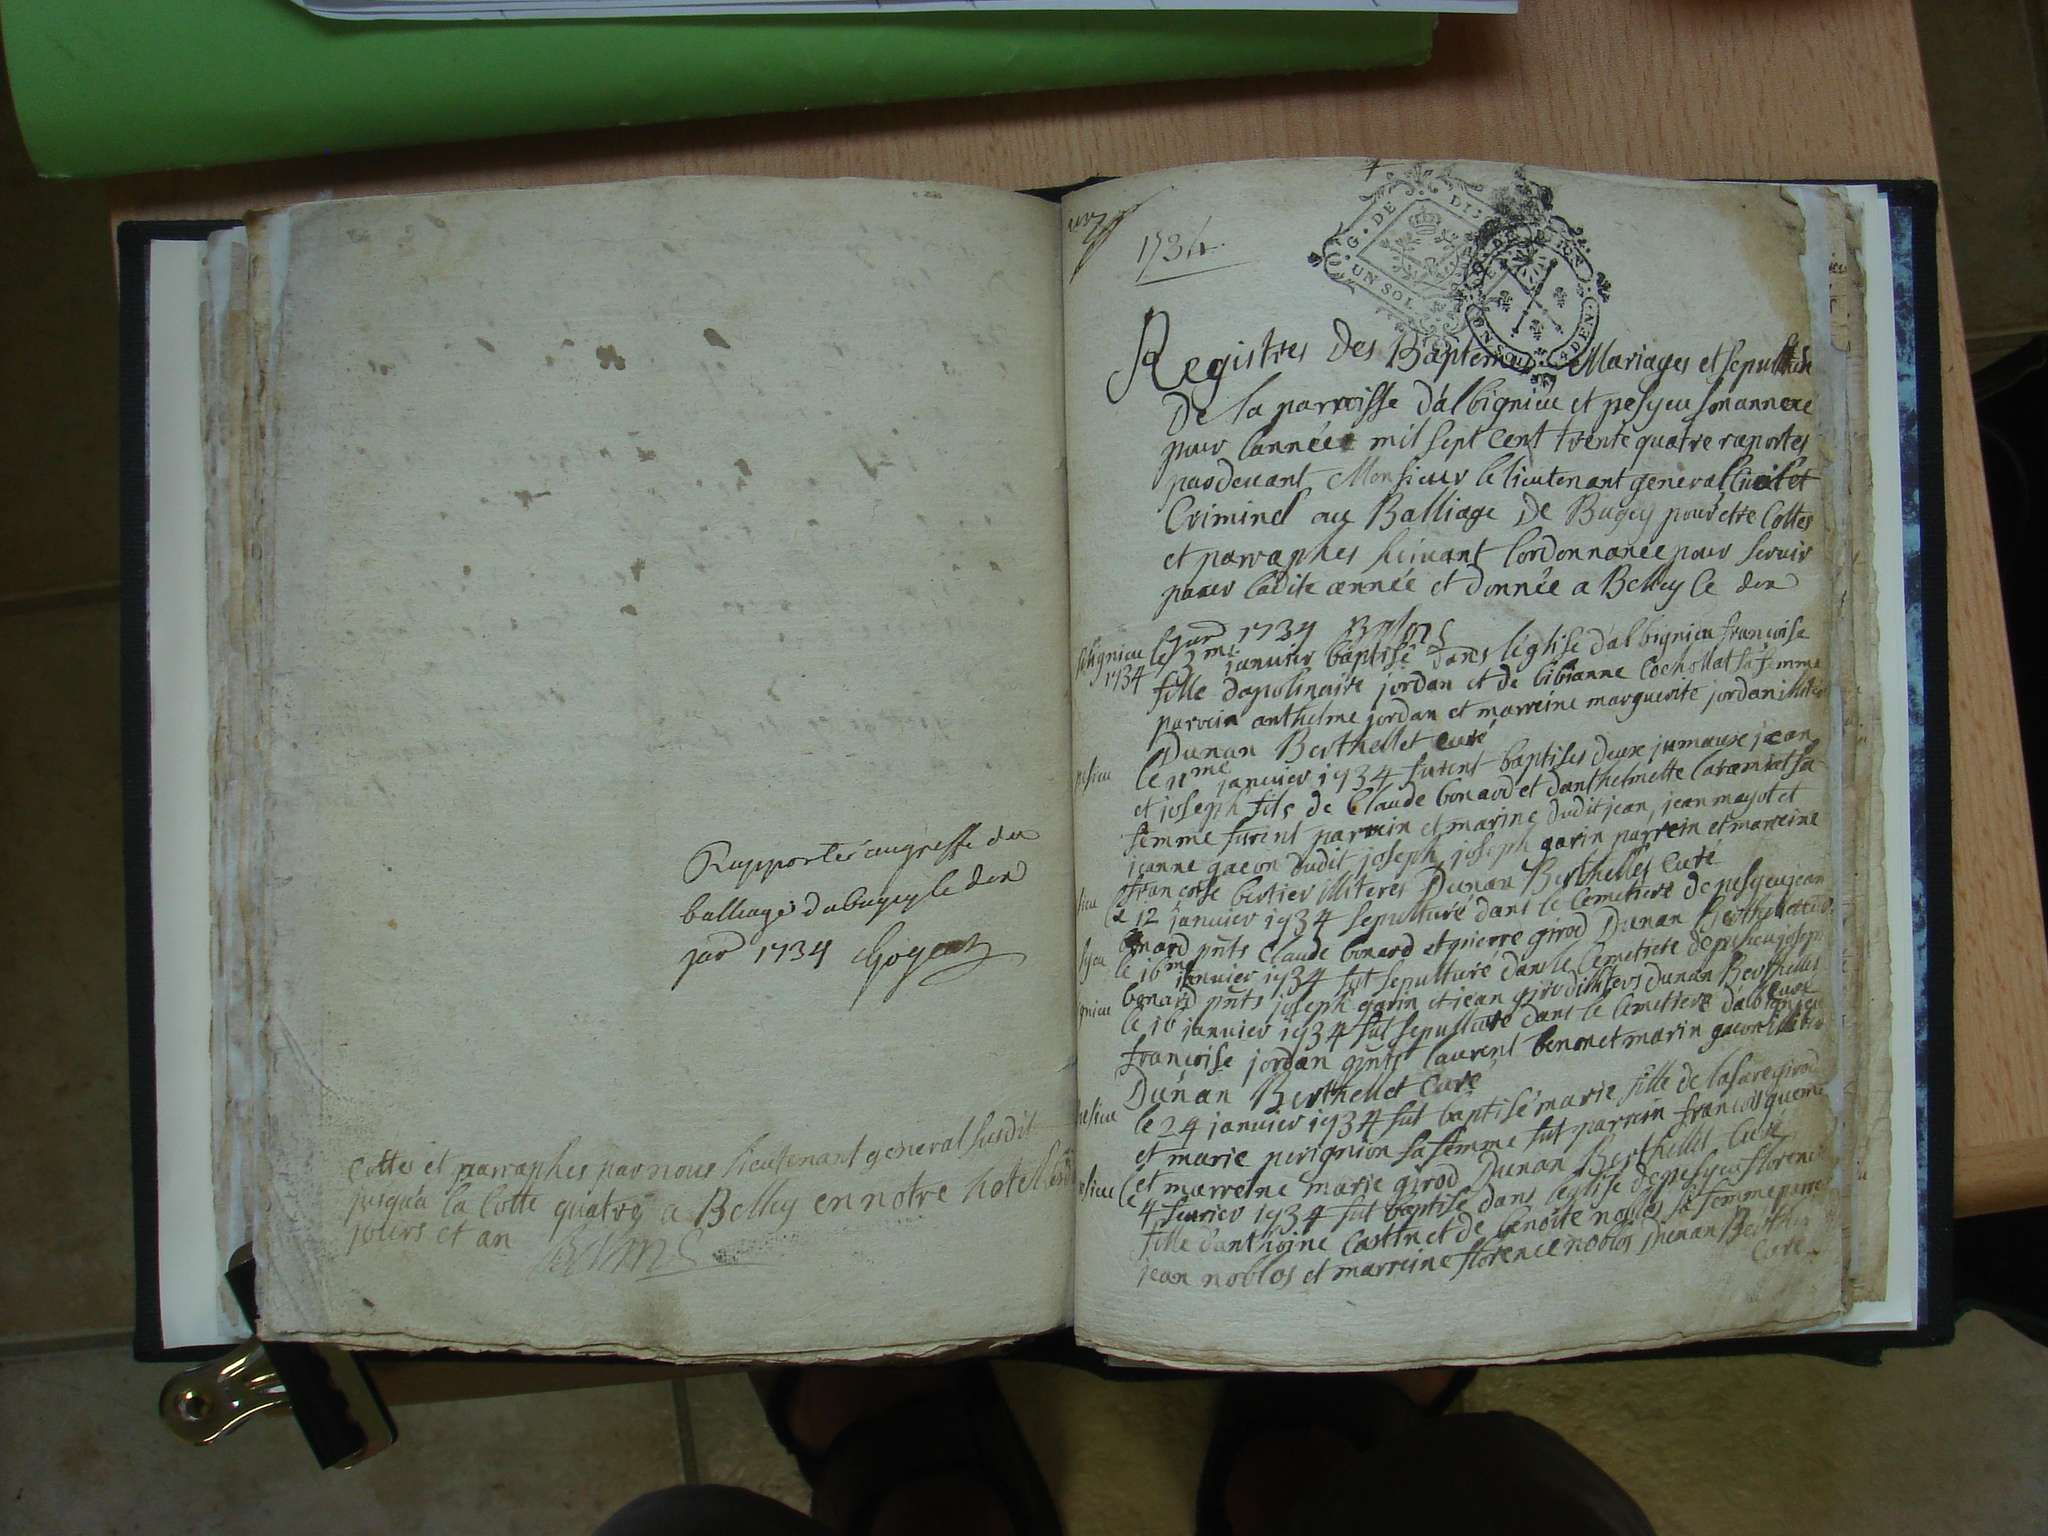 Rapporté au greffe du
balliage du bugey le dix
jar 1734
Cottes et parraphes par nous lieutenant general susdit
jusqu'a la Cotte quatre a Belley en notre hotel les
jours et an
1734
G. DE DIJ
UN SOL
Registres Des Baptemes Mariages et sepultures
De la parroisse d'albignieu et pesyeu son annexe
pour l'année mil sept cent trente quatre raportes
pardevant Monsieur le lieutenant general Civil et
Criminel au Balliage De Bugey pour etre Cottes
et parraphes suivant l'ordonnance pour servir
pour ladite année et donnée a Belley le dix
jar 1734
albignieu le 3me janvier baptisé dans l'église d'albignieu françoise
1734 fille d'apolinaire jordan et de bibianne Cochollat sa femme
parrein anthelme jordan et marreine marguerite jordan illiteres
Dunan Berthellet Curé
pesieu le 11me janvier 1734 furent baptises deux jumaux jean
et joseph fils de Claude bonard et d'anthelmette sa
femme furent parrein et marine dudit jean, jean mayot et
jeanne gacon dudit joseph, joseph garin parrein et marreine
françoise bertier illiteres Dunan Berthellet Curé
le 12 janvier 1734 sepulturé dans le Cemetiere de pesyeu jean
bonard pnts Claude bonard et pierre girod Dunan Berthellet
le 16me janvier 1734 fut sepulturé dans le Cemetiere de pesieu joseph
bonard pnts joseph garin et jean girod Dunan Berthellet
Curé
le 16 janvier 1734 fut sepulturé dans le Cemetiere d'albignieu
françoise jordan pnts laurent benon et marin gacon
Dunan Berthellet Curé
pesieu le 24 janvier 1734 fut baptisé marie fille de lasare girod
et marie perignion sa femme fut parrein françois
et marreine marie girod Dunan Berthellet Curé
pesieu le 4 feuvrier 1734 fut baptisé dans l'eglise de pesyeu florence
fille d'anthoine Castin et de benoite noblos sa femme parrein
jean noblos et marreine florence noblos Dunan Berthellet
Curé